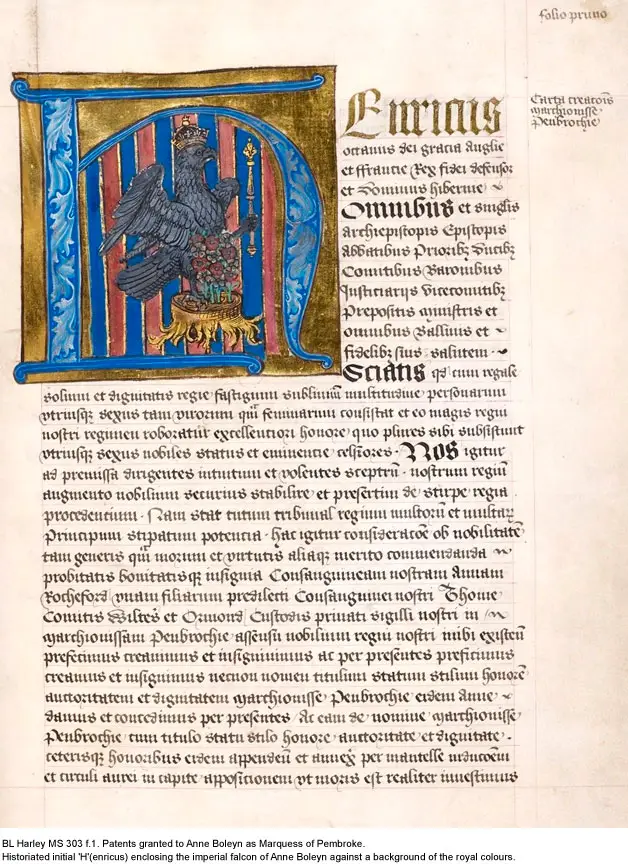 folio primo
Carta creacois
marchionisse
Penbrochie
Enricus
octauus dei gracia Anglie
et ffrancie Rex fidei defensor
et Dominus hibernie
Omnibus et singlis
archiepiscopis Episcopis
abbatibus Prioribz Ducibz
Comitibus Baronibus
Iusticiarijs Vicecomitibz
Prepositis ministris et
omnibus Balliuis et
fidelibz suis salutem
Sciatis qd cum regale
solium et dignitatis regie fastigium sublimiu multitudine personarum
vtriusqz sexus tam virorum qm feminarum consistat et eo magis regni
nostri regimen roboratur excellentiori honore quo plures sibi subsistunt
vtriusqz sexus nobiles status et eminencie celsiores . Nos igitur
ad premissa dirigentes intuitum et volentes sceptru nostrum regiu
augmento nobilium securius stabilire et presertim de stirpe regia
procedencium . Nam stat tutum tribunal regium multoru et multar
Principum stipatum potencia . hac igitur consideracoe ob nobilitate
tam generis qm morum et virtutis aliaqz merito commendanda
probitatis bonitatisqz insignia Consanguineam nostram Annam
Rocheford vnam filiarum predilecti Consanguinei nostri Thome
Comitis Wiltes et Ormond Custodis priuati sigilli nostri in
marchionissam Penbrochie assensu nobilium regni nostri nibi existen
prefecimus creauimus et insigniuimus ac per presentes preficimus
creamus et insignimus necnon nomen titulum statum stilum honore
auctoritatem et dignitatem marchionisse Penbrochie eidem Anne
damus et concedimus per presentes Ac eam de nomine marchionisse
Penbrochie cum titulo statu stilo honore auctoritate et dignitate .
ceterisqz honoribus eidem appenden et annex per mantelle inducoem
et circuli aurei in capite apposicionem vt moris est realiter inuestimus
BL Harley MS 303 f.1. Patents granted to Anne Boleyn as Marquess of Pembroke.
Historiated initial 'H'(enricus) enclosing the imperial falcon of Anne Boleyn against a background of the royal colours.